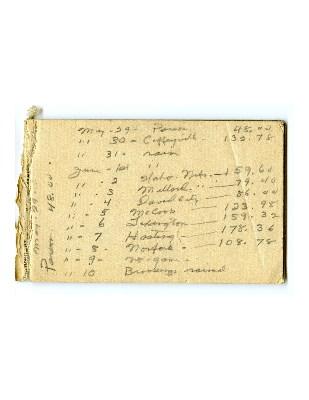 May - 29 - Power 48.00
" 30 - Coffeyville 132.78
" 31 - rain
June - 1st "
" - 2 Nebr. - 159.60
" 3 - 79.40
" 4 David City - 86.00
" - 5 McCook - 123.98
" - 6 Lexington - 159.32
" - 7 Hasting - 178.36
" - 8 - Norfolk - 108.78
" - 9 - no-game -
" 10 Brookings rained
May 29 -
Power 48.00 -